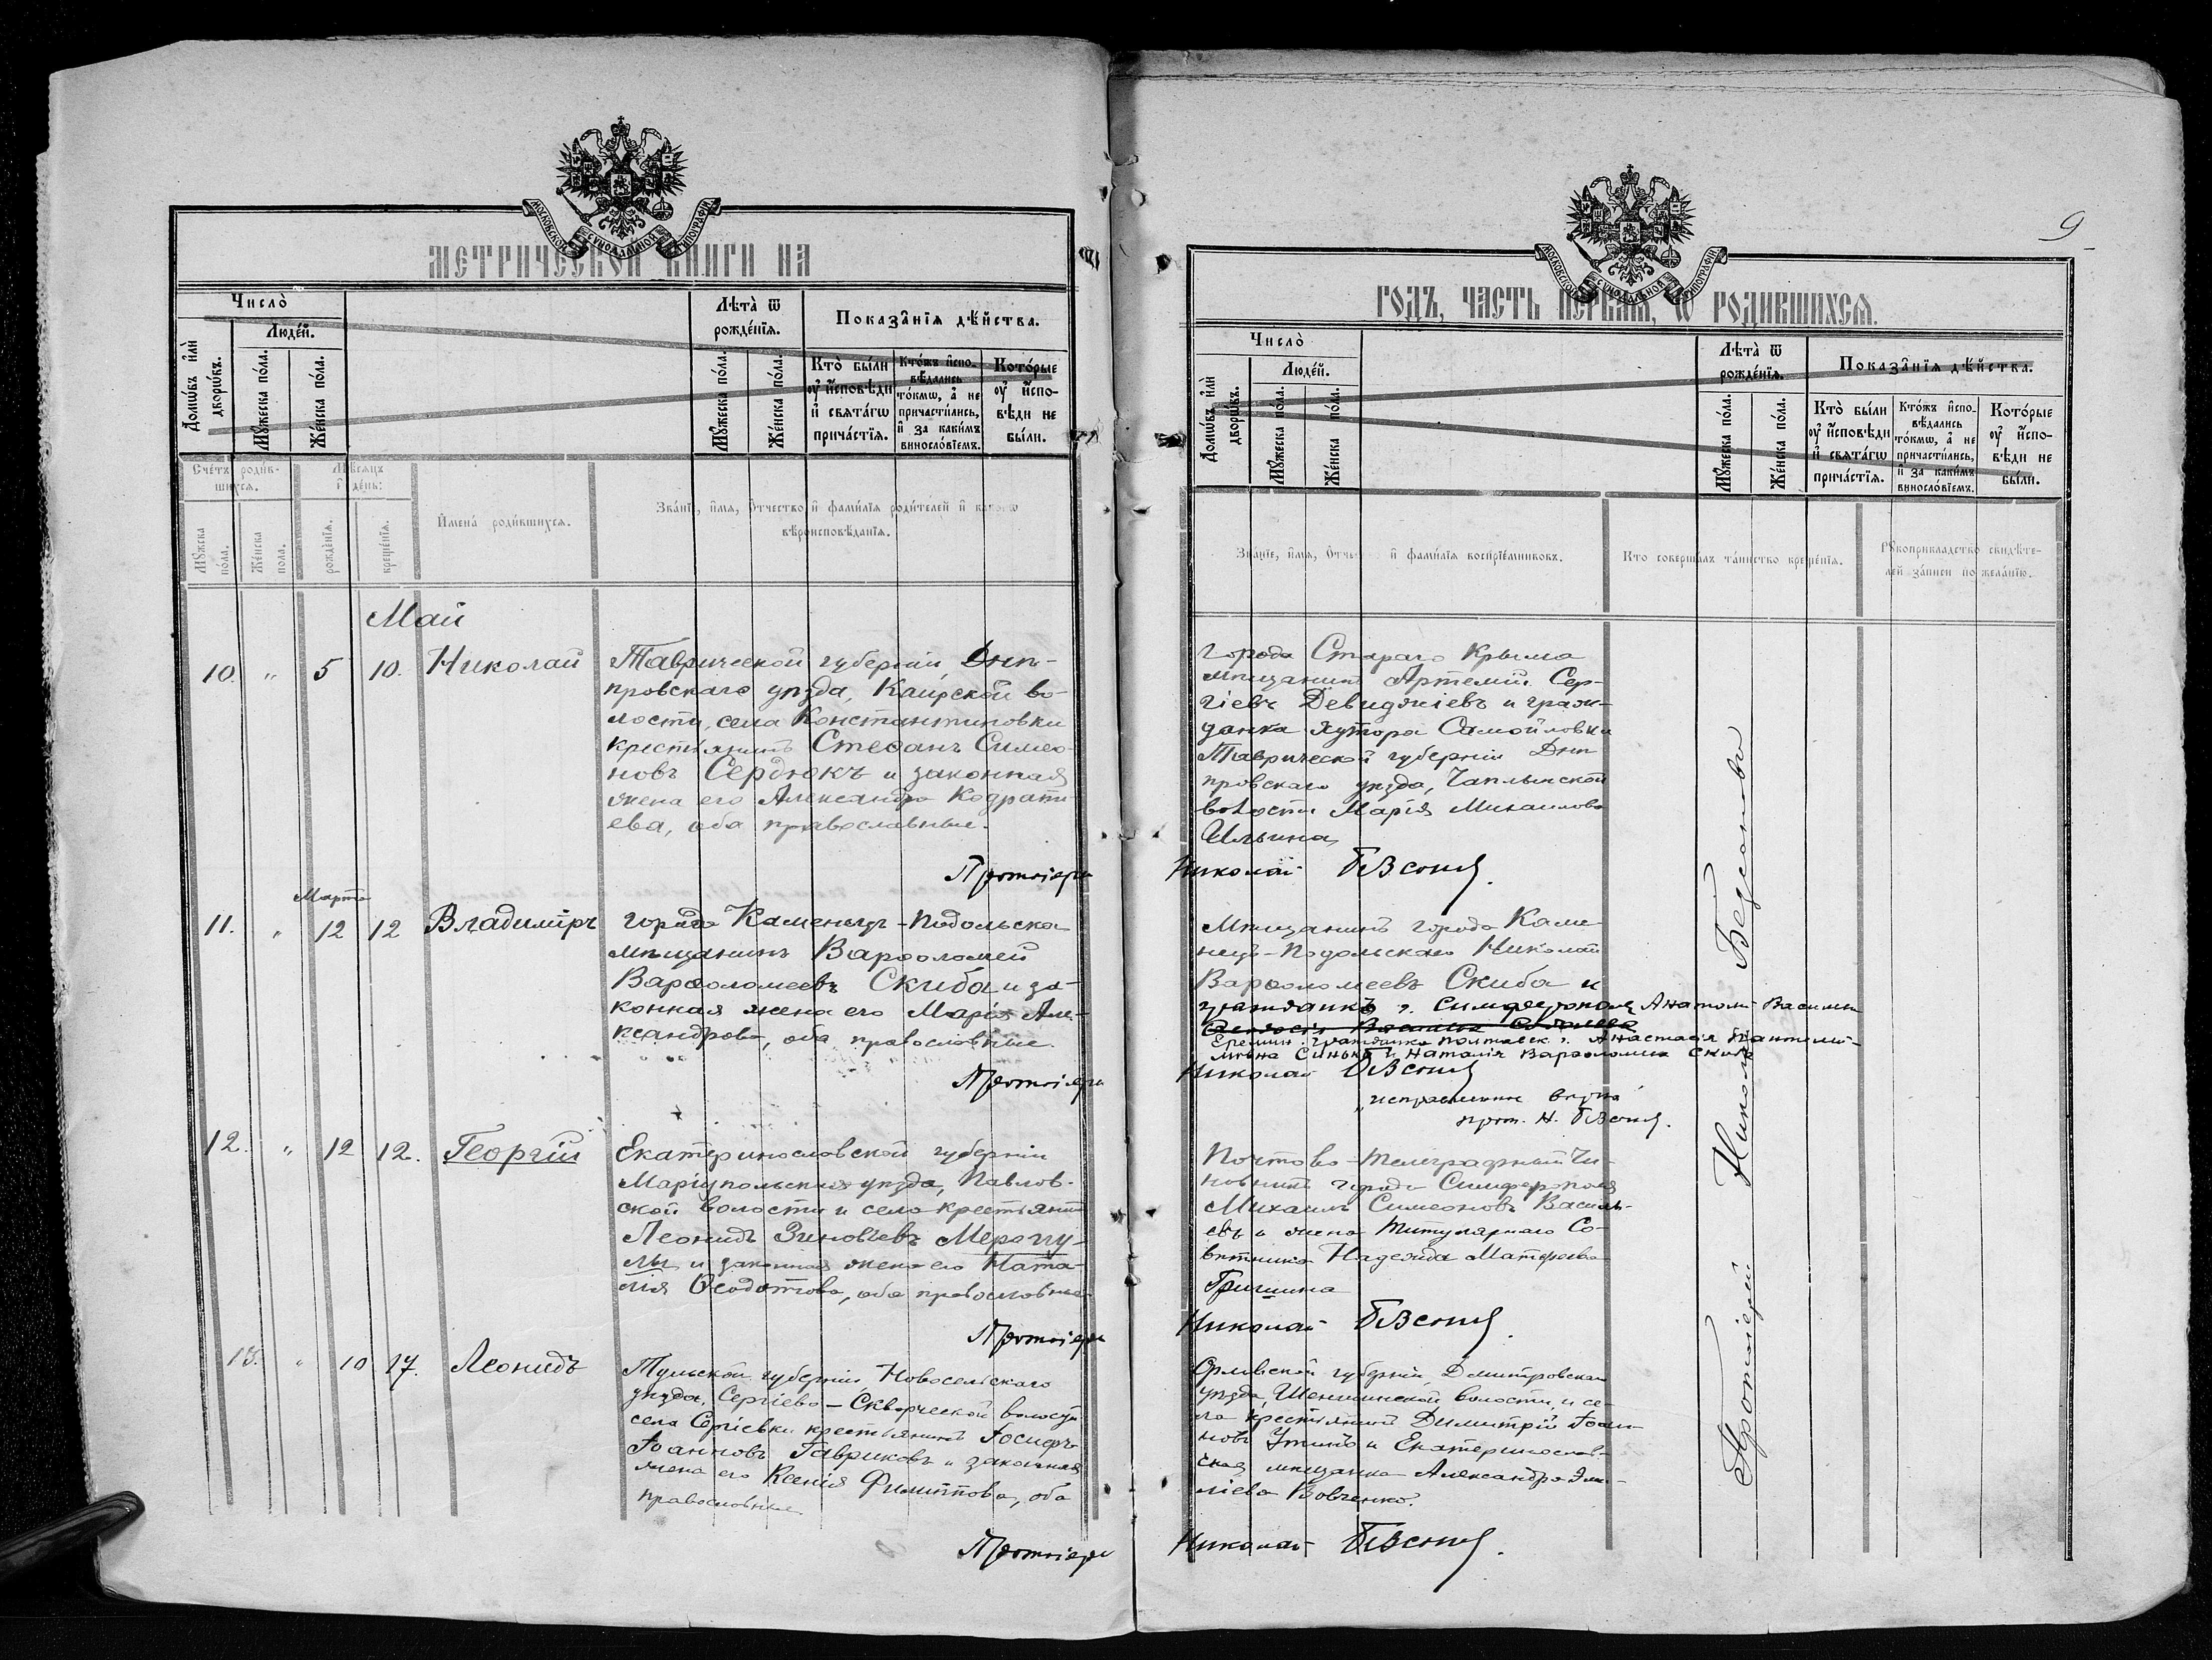 МОСКОВСКОЙ СѴНОДАЛЬНОЙ ТИПОГРАФІИ
МЕТРИЧЕСКОЙ КНИГИ НА
Число̀
Домѡ́въ и҆лѝ дворѡ́въ.
Люде́й.
Мꙋ́жеска по́ла.
Же́нска по́ла.
Лѣта̀ ѿ рожде́нїѧ.
Мꙋ́жеска по́ла.
Же́нска по́ла.
Показа̑нїѧ дѣ́йства.
Кто̀ бы́ли оу҆ и҆́сповѣди и҆ свѧта́гѡ прича́стїѧ.
Кто́жъ и҆спо-
вѣ́дались
то́кмѡ, а҆ не
причасти́лись,
и҆ за каки́мъ
виносло́вїемъ.
Кото́рые
оу҆ и҆спо-
вѣди не
бы́ли.
Сче́тъ роди́в-
шихсѧ.
Мꙋ́жска по́ла.
Же́нска пола.
Мѣ́сѧцъ
и҆ де́нь:
рожде́нїѧ.
креще́нїѧ.
И҆мена̀ роди́вшихсѧ.
Зва́нїе, и҆́мѧ, о҆́тчество и҆ фами́лїѧ роди́телей и҆ како́гѡ
вѣроисповѣ́данїѧ.
Май
10. " 5 10. Николай
Таврической губерніи, Днѣ-
провскаго уѣзда, Каирской во-
лости, села Константиновки
крестьянинъ Стефанъ Симео-
новъ Сердюкъ и законная
жена его Александра Кодрать
ева, оба православные.
Протоіерей
Марта
11. " 12 12 Владиміръ
города Каменецъ-Подольска
мѣщанинъ Варфоломей
Варфоломеевъ Скиба и за-
конная жена его Марія Але-
ксандрова, оба православные.
Протоіерей
12. " 12 12. Георгій
Екатеринославской губерніи
Маріупольскаго уѣзда, Павлов-
ской волости и села крестьянинъ
Леонидъ Зиновіевъ
и законная жена его Ната-
лія Ѳеодотова, оба православные
Протоіерей
13. " 10 17. Леонидъ
Тульской губерніи Новосельскаго
уѣзда, Сергіево-Скворческой волости
села Сергіевки крестьянинъ Іосифъ
Іоанновъ Гавриковъ и законная
жена его Ксенія Филиппова, оба
православные
Протоіерей
9
МОСКОВСКОЙ СѴНОДАЛЬНОЙ ТИПОГРАФІИ
ГОДЪ, ЧАСТЬ ПЕРВАЯ, Ѡ РОДИВШИХСѦ.
Число̀
Домѡ́въ и҆лѝ дворѡ́въ.
Люде́й.
Мꙋ́жеска по́ла.
Же́нска по́ла.
Лѣта̀ ѿ рожде́нїѧ.
Мꙋ́жеска по́ла.
Же́нска по́ла.
Показа̑нїѧ дѣ́йства.
Кто̀ бы́ли оу҆ и҆́сповѣди и҆ свѧта́гѡ прича́стїѧ.
Кто́жъ и҆спо-
вѣ́дались
то́кмѡ, а҆ не
причасти́лись,
и҆ за каки́мъ
виносло́вїемъ.
Кото́рые
оу҆ и҆спо-
вѣди не
бы́ли.
Зва́нїе, и҆́мѧ, о҆́тчество и҆ фами́лїѧ воспрїе́мниковъ.
Кто соверша́лъ та́инство креще́нїѧ.
Рꙋкоприкла́дство свидѣ́те-
лей за́писи по жела́нїю.
города Стараго Крыма
мѣщанинъ Артемій Сер-
гіевъ Девиджіевъ и граж-
данка хутора Самойловки
Таврической губерніи Днѣ-
провскаго уѣзда, Чаплинской
волости Марія Михаилова
Ильина
Николай Безсоновъ.
Мѣщанинъ города Каме-
нецъ-Подольскаго Николай
Варфоломеевъ Скиба и
гражданкѣ г. Симферополя Анатолій Васильев
Еремин. гражданка г. Анастасія Пантелей-
Синько и Наталія Варфоломеева Скиба
Николай Безсоновъ
исправленное вѣрно
прот. Н. Безсоновъ.
Почтово-Телеграфный Чи-
новникъ города Симферополя
Михаилъ Симеоновъ Василь-
евъ и жена Титулярнаго Со-
вѣтника Надежда Матфеева
Гришина
Николай Безсоновъ.
Орловской губерніи, Дмитровскаго
уѣзда, волости, и се-
ла крестьянинъ Димитрій Іоан-
новъ и Екатеринослав-
ская мѣщанка Александра Эми-
ліева Вовченко.
Николай Безсоновъ.
Протоіерей Николай Безсоновъ